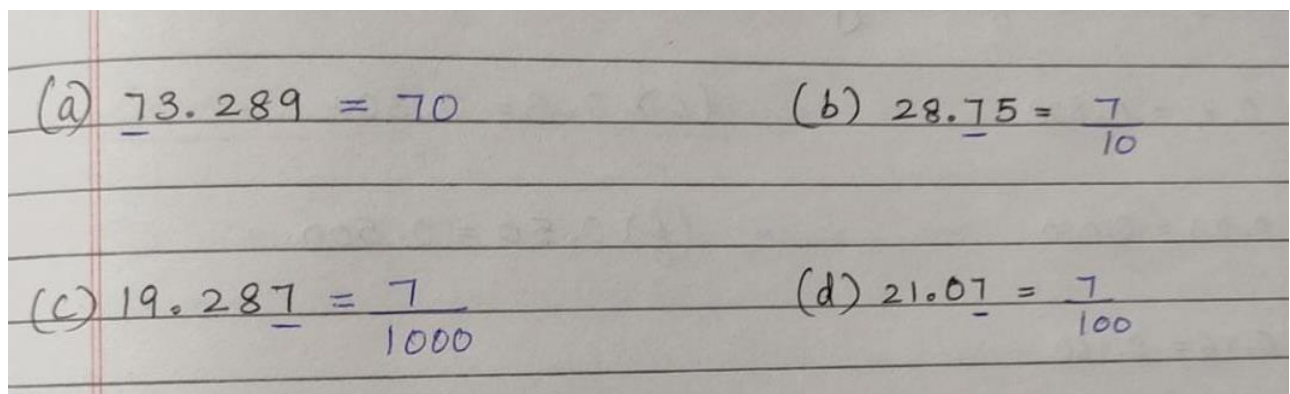 (a) 73.289 = 70 (b) 28.75 = 7/10
(c) 19.287 = 7/1000 (d) 21.07 = 7/100